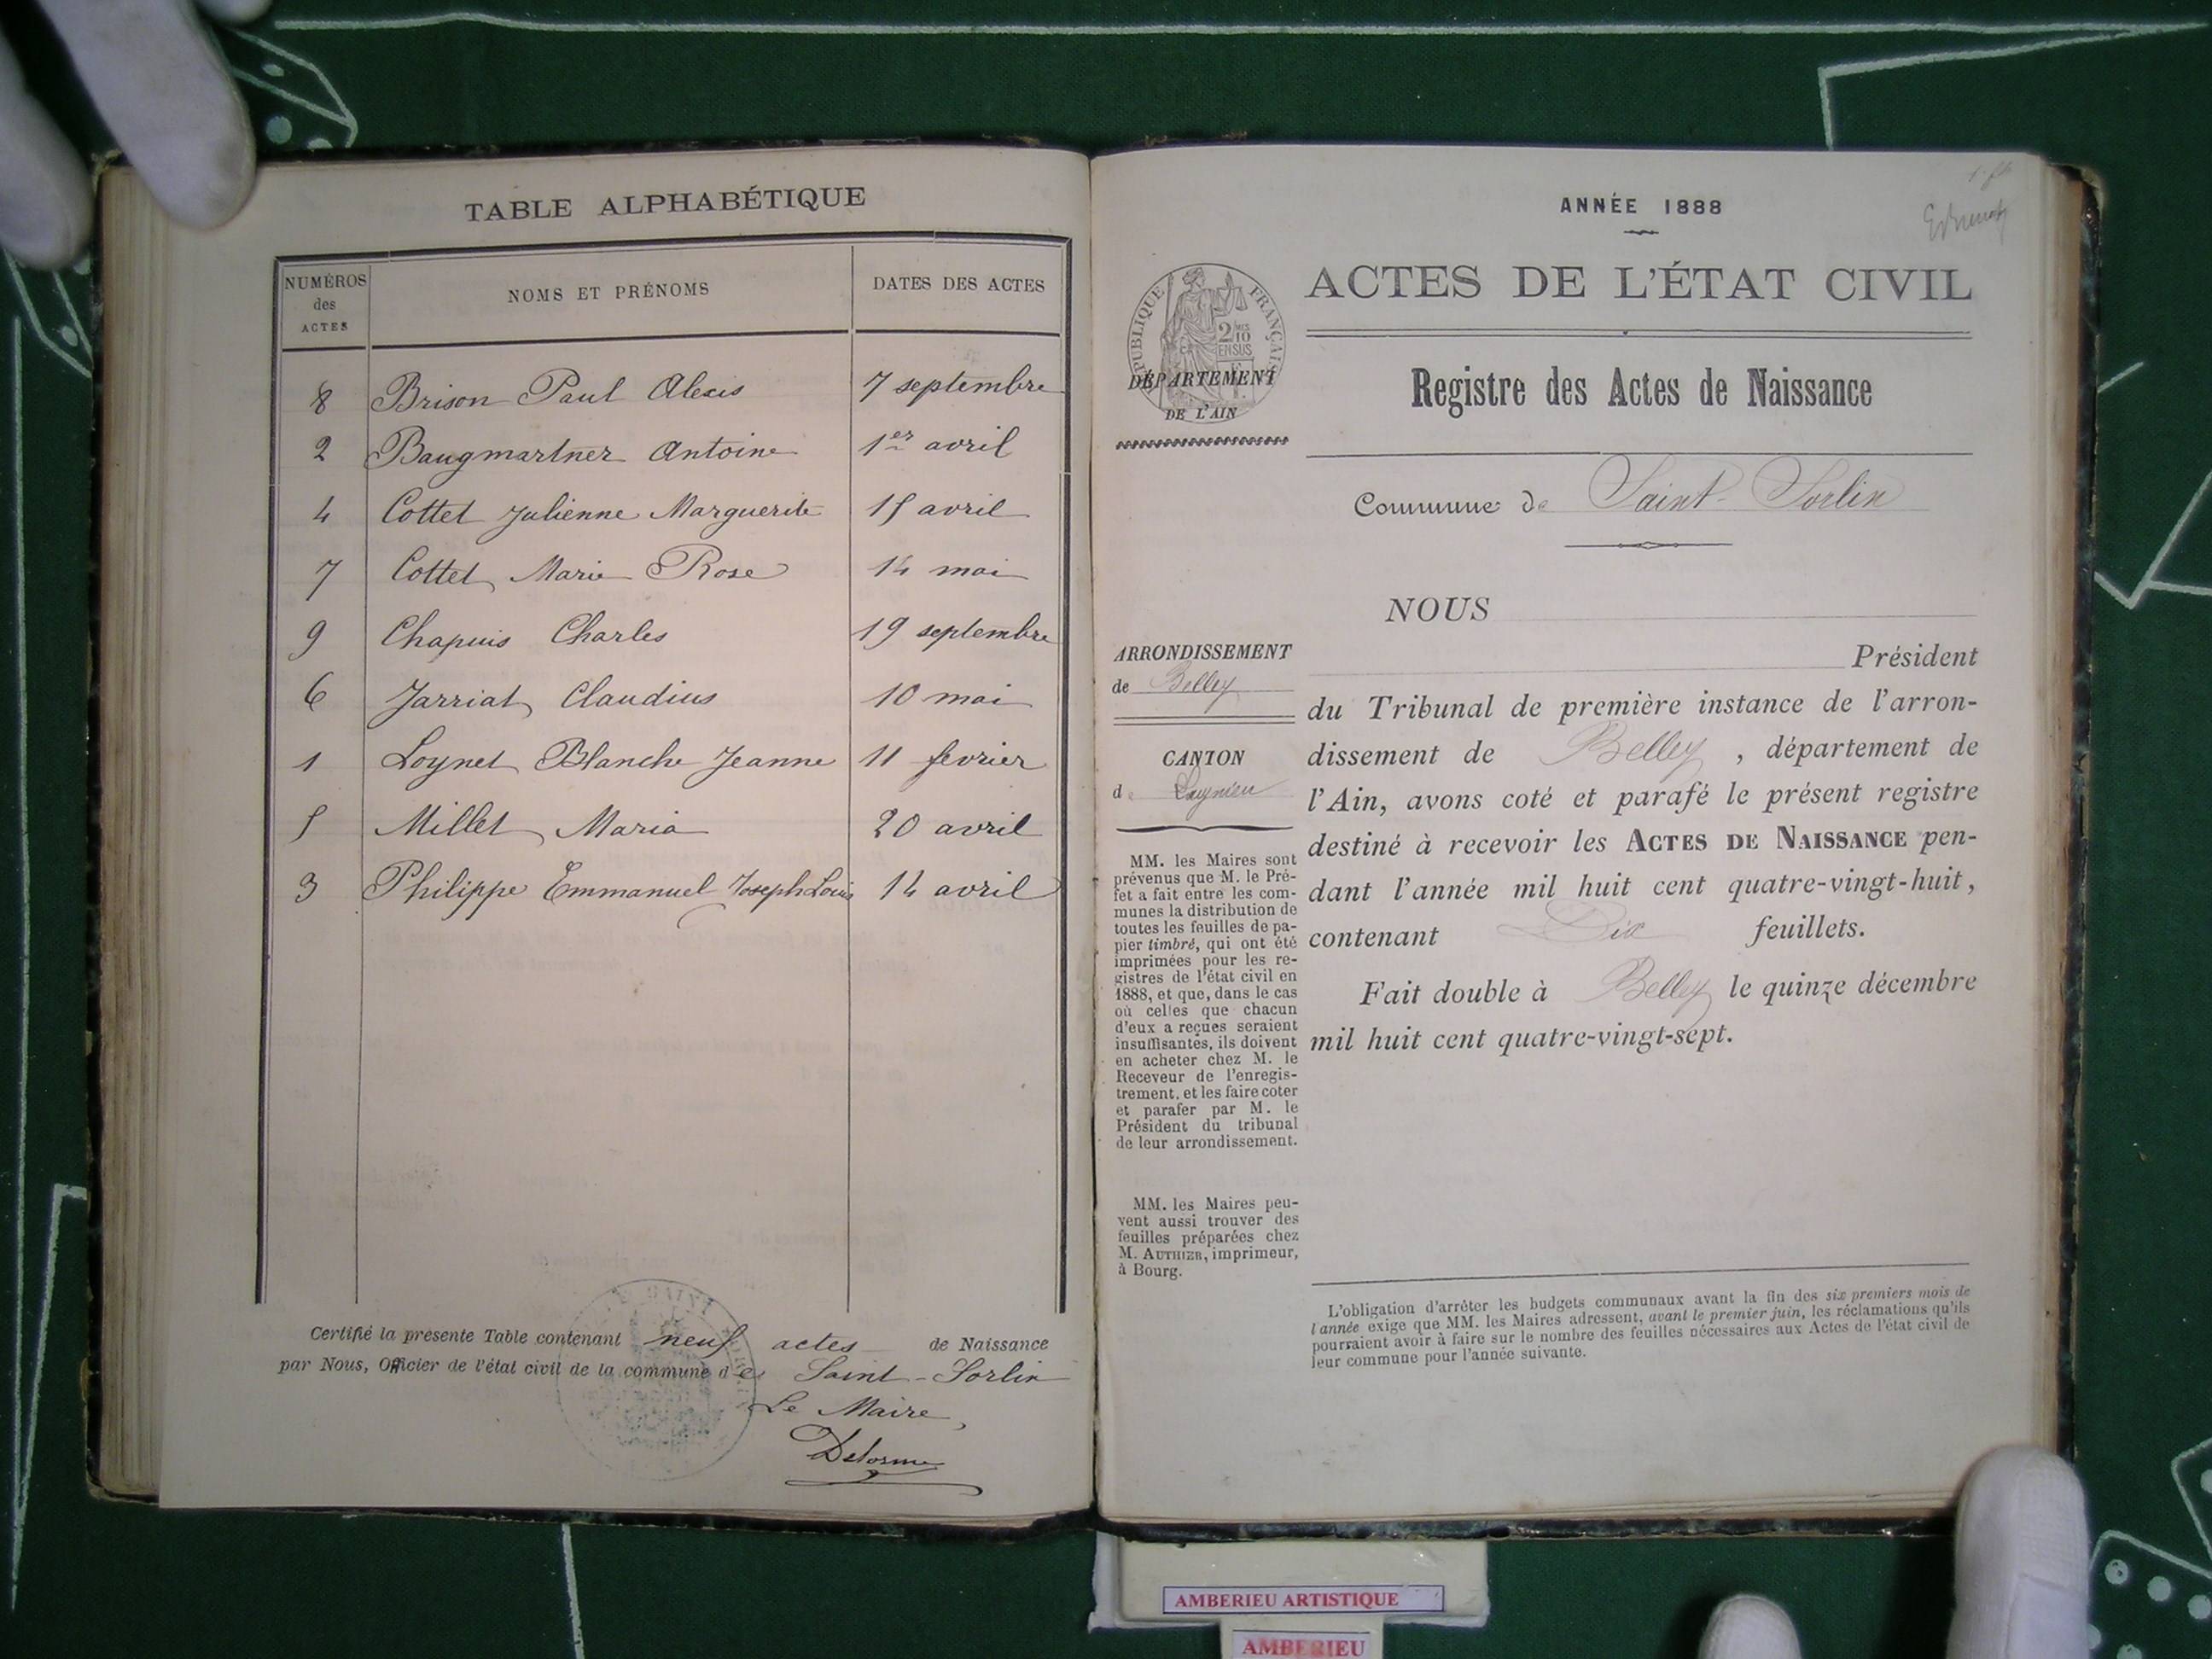 TABLE ALPHABÉTIQUE
NUMÉROS des ACTES
NOMS ET PRÉNOMS
DATES DES ACTES
8 Brison Paul Alexis 7 septembre
2 Baugmartner Antoine 1er avril
4 Cottet Julienne Marguerite 15 avril
7 Cottet Marie Rose 14 mai
9 Chapuis Charles 19 septembre
6 Jarriat Claudius 10 mai
1 Loynet Blanche Jeanne 11 fevrier
5 Millet Maria 20 avril
3 Philippe Emmanuel Joseph Louis 14 avril
Certifié la présente Table contenant neuf actes de Naissance
par Nous, Officier de l'état civil de la commune de Saint-Sorlin
Le Maire,
Delorme
ANNÉE 1888
ACTES DE L'ÉTAT CIVIL
RÉPUBLIQUE FRANÇAISE
2/10 EN SUS
DÉPARTEMENT
DE L'AIN
Registre des Actes de Naissance
Commune de Saint-Sorlin
ARRONDISSEMENT
de Belley
CANTON
de Lagnieu
MM. les Maires sont
prévenus que M. le Pré-
fet a fait entre les com-
munes la distribution de
toutes les feuilles de pa-
pier timbré, qui ont été
imprimées pour les re-
gistres de l'état civil en
1888, et que, dans le cas
où celles que chacun
d'eux a reçues seraient
insuffisantes, ils doivent
en acheter chez M. le
Receveur de l'enregis-
trement, et les faire coter
et parafer par M. le
Président du tribunal
de leur arrondissement.
MM. les Maires peu-
vent aussi trouver des
feuilles préparées chez
M. AUTHIER, imprimeur,
à Bourg.
NOUS
Président
du Tribunal de première instance de l'arron-
dissement de Belley, département de
l'Ain, avons coté et parafé le présent registre
destiné à recevoir les ACTES DE NAISSANCE pen-
dant l'année mil huit cent quatre-vingt-huit,
contenant Dix feuillets.
Fait double à Belley le quinze décembre
mil huit cent quatre-vingt-sept.
L'obligation d'arrêter les budgets communaux avant la fin des six premiers mois de
l'année exige que MM. les Maires adressent, avant le premier juin, les réclamations qu'ils
pourraient avoir à faire sur le nombre des feuilles nécessaires aux Actes de l'état civil de
leur commune pour l'année suivante.
AMBERIEU ARTISTIQUE
AMBERIEU